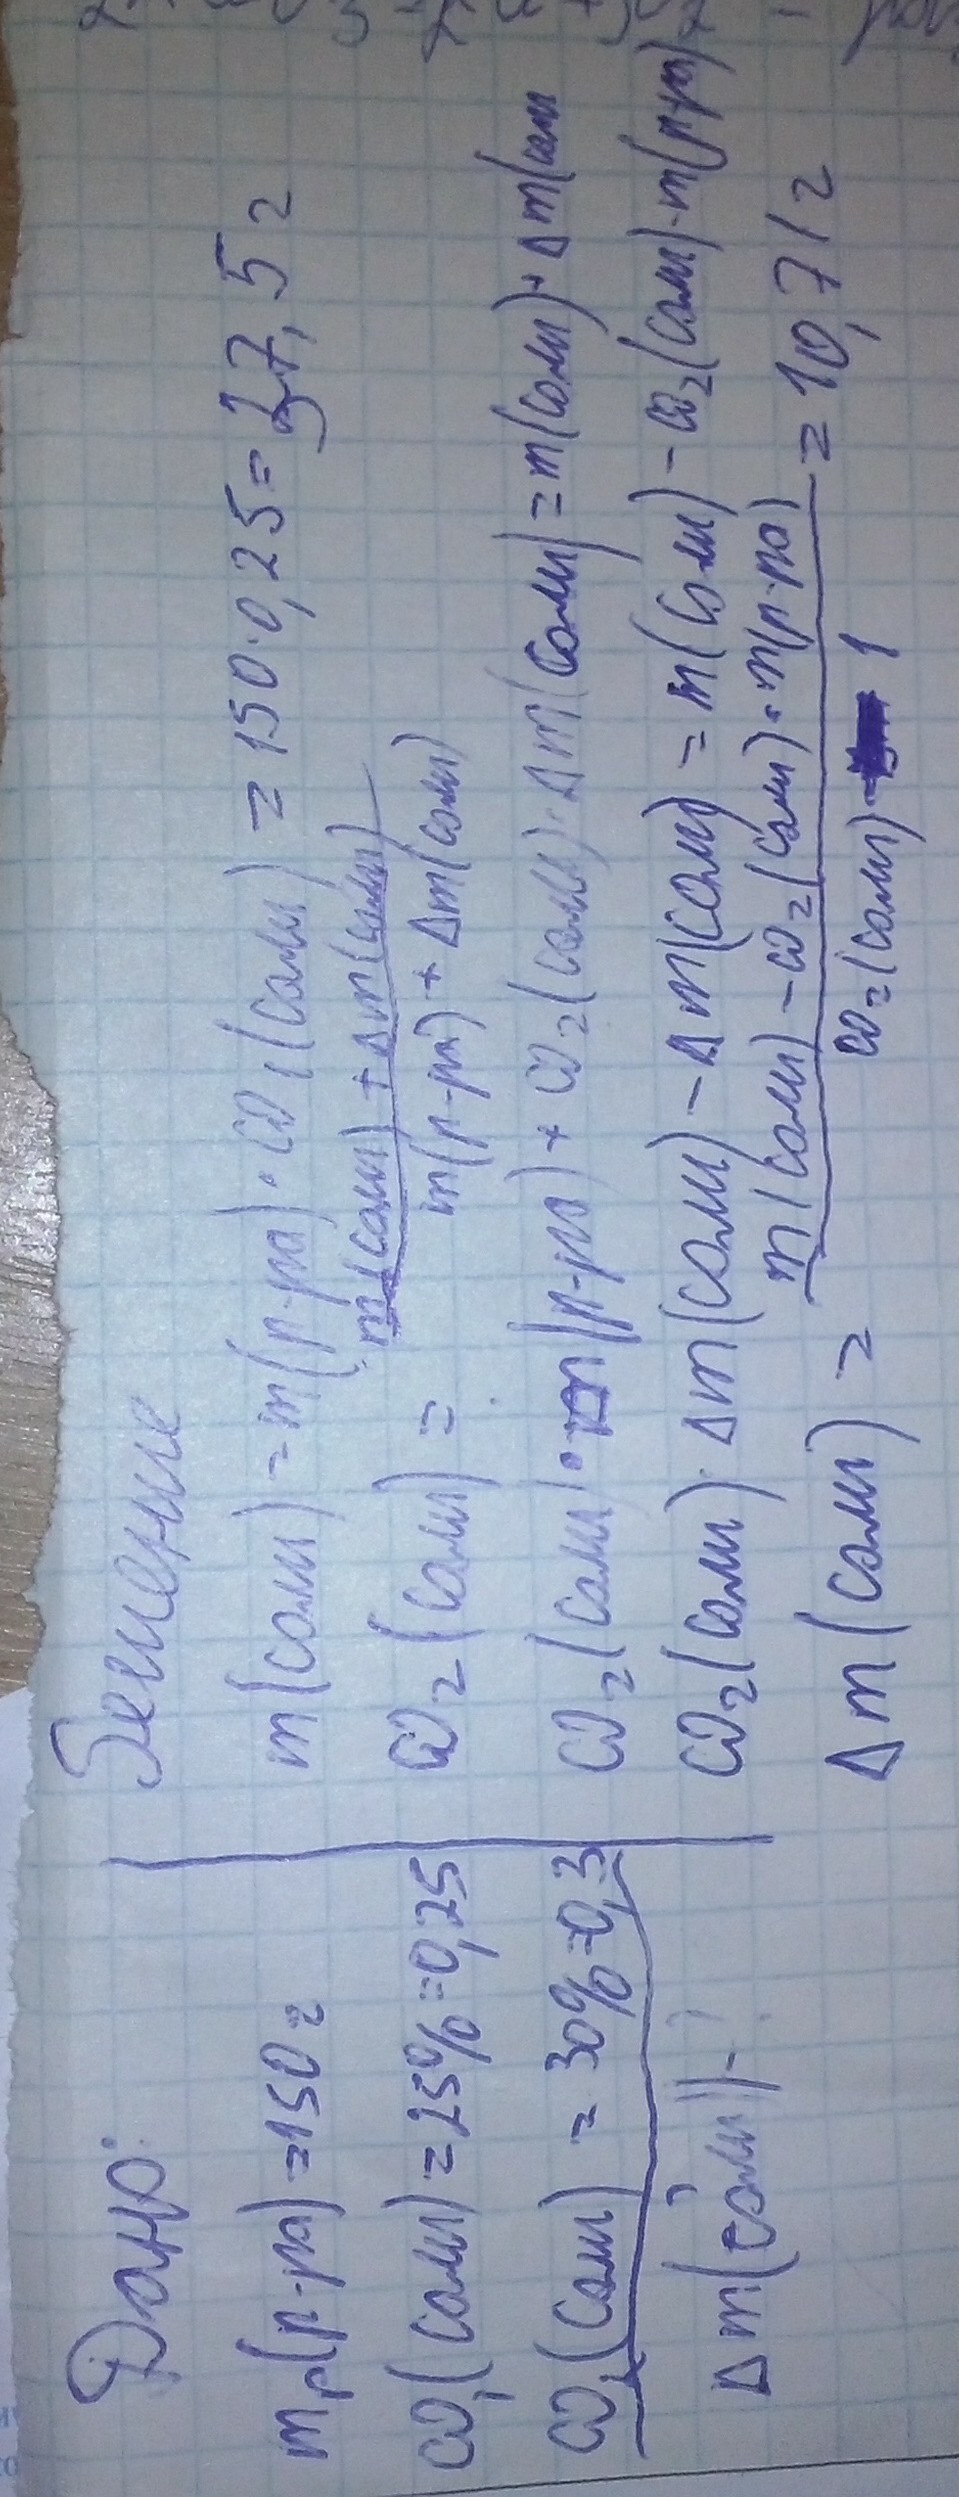 Дано:
m(р-ра) = 150 г
ω₁(соли) = 25% = 0,25
ω₂(соли) = 30% = 0,3
Δm(соли) - ?
Решение
m(соли) = m(р-ра) · ω₁(соли) = 150 · 0,25 = 37,5 г
m(соли) + Δm(соли)
ω₂(соли) =
m(р-ра) + Δm(соли)
ω₂(соли) · m(р-ра) + ω₂(соли) · Δm(соли) = m(соли) + Δm(соли
ω₂(соли) · Δm(соли) - Δm(соли) = m(соли) - ω₂(соли) · m(р-ра)
m(соли) - ω₂(соли) · m(р-ра)
Δm(соли) = = 10,71 г
ω₂(соли) - 1